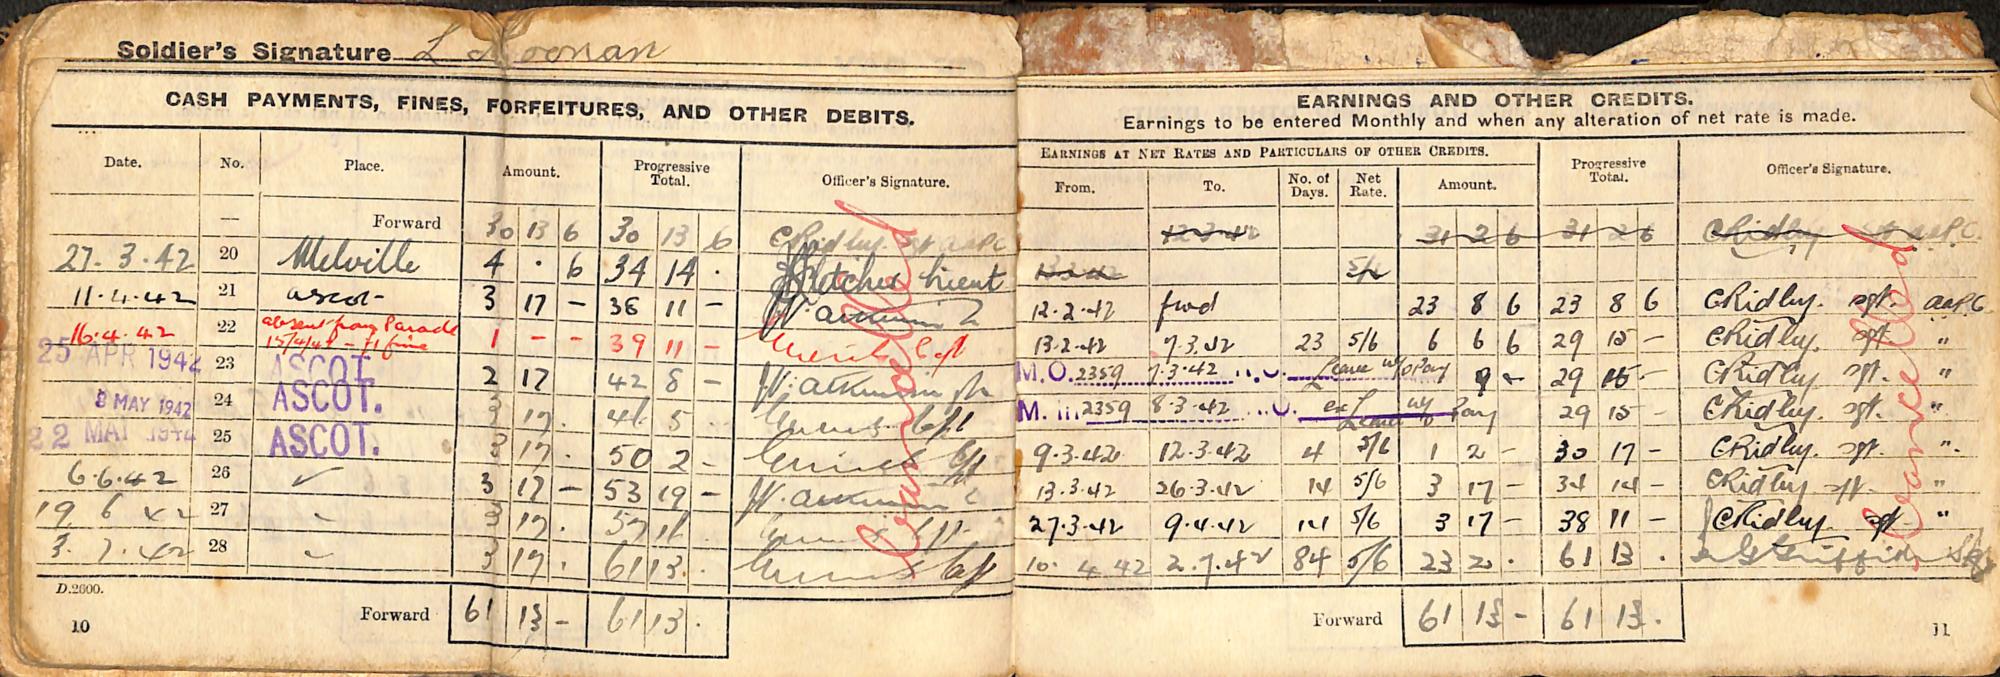 Soldier's Signature L Noonan
CASH PAYMENTS, FINES, FORFEITURES, AND OTHER DEBITS.
Date. No. Place. Amount. Progressive Total. Officer's Signature.
— Forward 30 13 6 30 13 6 CRidley. Sgt AAPC
27.3.42 20 Melville 4 . 6 34 14 . Fletcher Lieut
11.4.42 21 ascot - 3 17 - 38 11 -
16.4.42 22 absent from Parade 15/4/42 - £1 fine 1 - - 39 11 - Capt
25 APR 1942 23 ASCOT. 2 17 42 8 -
8 MAY 1942 24 ASCOT. 3 17 . 46 5 Capt
22 MAY 1942 25 ASCOT. 3 17 . 50 2 - Capt
6.6.42 26 ✓ 3 17 - 53 19 -
19 6 42 27 3 17 . 57 16 Capt
3. 7. 42 28 3 17 . 61 13 . Capt
Cancelled
D.2600.
Forward 61 13 - 61 13 .
10
EARNINGS AND OTHER CREDITS.
Earnings to be entered Monthly and when any alteration of net rate is made.
EARNINGS AT NET RATES AND PARTICULARS OF OTHER CREDITS. Progressive Total. Officer's Signature.
From. To. No. of Days. Net Rate. Amount.
12.3.42 31 2 6 31 2 6 CRidley Sgt AAPC.
13.3.42 5/6
12.2.42 fwd 23 8 6 23 8 6 CRidley. Sgt. AAPC.
13.2.42 7.3.42 23 5/6 6 6 6 29 15 - CRidley. Sgt "
M.O. 2359 7.3.42 Leave w/o Pay 29 15 - CRidley Sgt. "
M. 2359 8.3.42 ex Leave w/o Pay 29 15 - CRidley. Sgt. "
9.3.42 12.3.42 4 5/6 1 2 - 30 17 - CRidley. Sgt. "
13.3.42 26.3.42 14 5/6 3 17 - 34 14 - CRidley Sgt. "
27.3.42 9.4.42 14 5/6 3 17 - 38 11 - CRidley. Sgt "
10. 4 42 2.7.42 84 5/6 23 2 . 61 13 . G Griffith Sgt
Cancelled
Forward 61 13 - 61 13 .
11